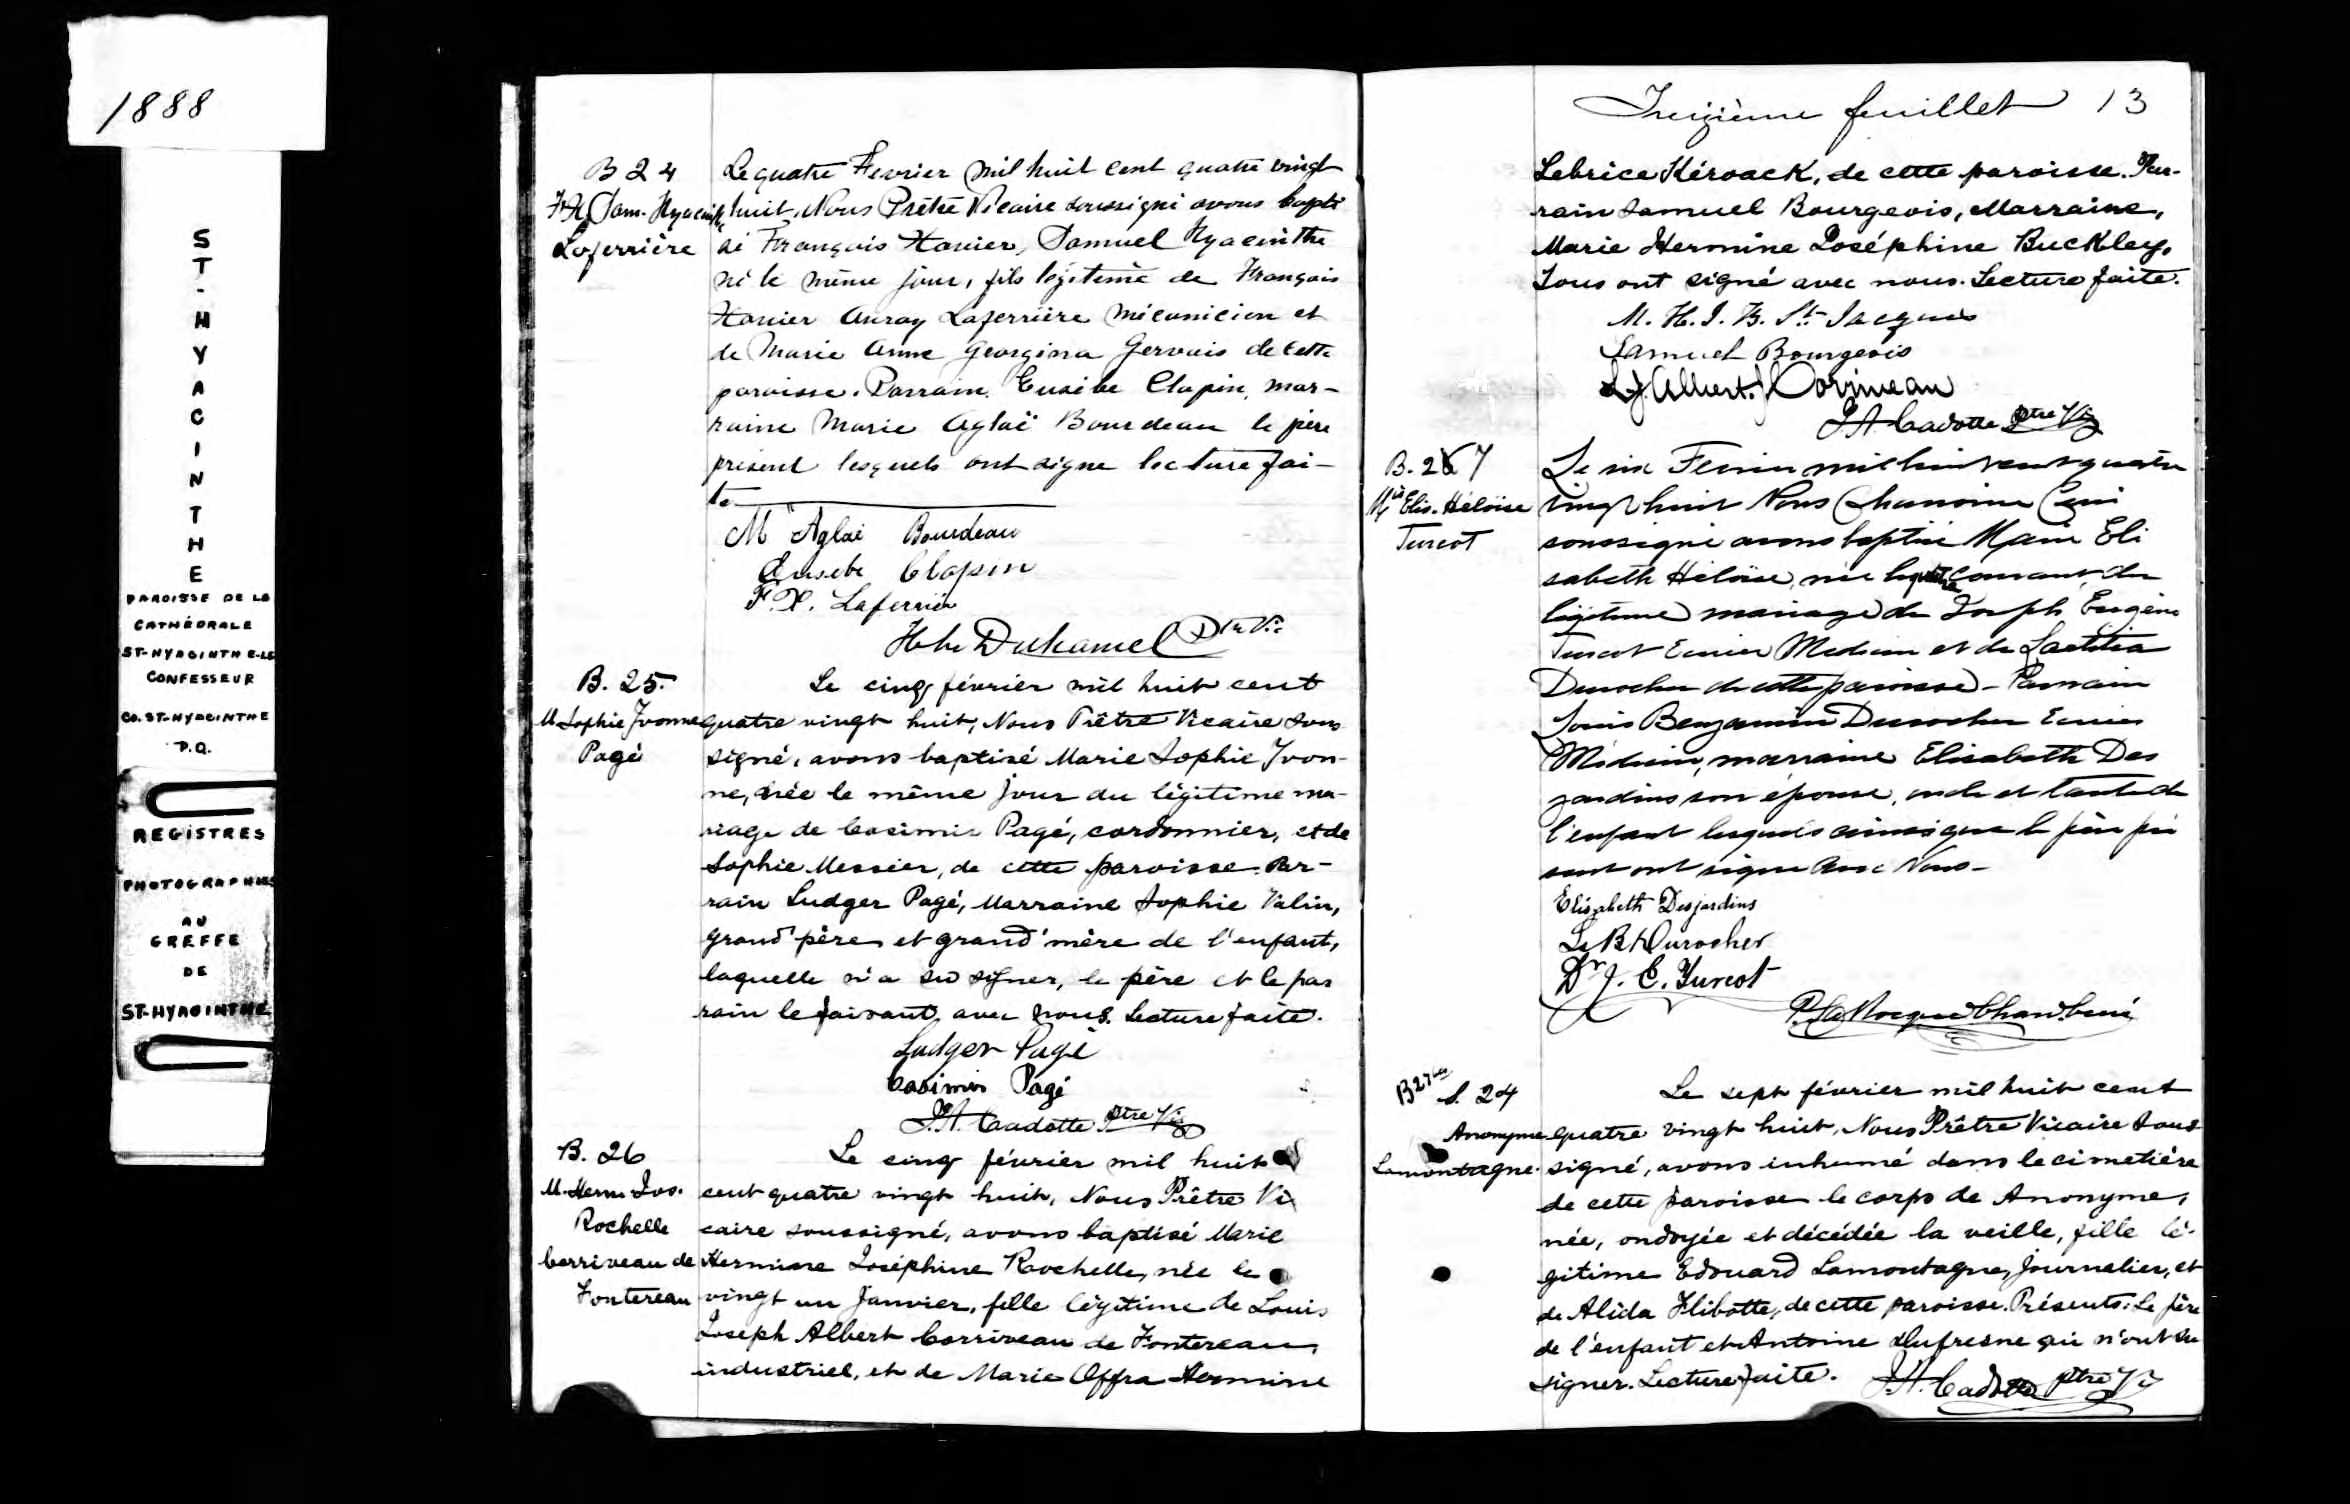 1888
ST-HYACINTHE
PAROISSE DE LA
CATHÉDRALE
ST-HYACINTHE-LE
CONFESSEUR
CO. ST-HYACINTHE
P.Q.
REGISTRES
PHOTOGRAPHIÉS
AU
GREFFE
DE
ST-HYACINTHE
B 24
F. X. Sam. Hyacinthe
Laferrière
Le quatre Fevrier mil huit cent quatre vingt
huit, Nous Prêtre Vicaire soussigné avons bapti
sé François Xavier, Samuel Hyacinthe
né le même jour, fils légitime de François
Xavier Auray Laferrière mécanicien et
de Marie Anne Georgina Gervais de cette
paroisse. Parrain, Eusèbe Clapin, mar-
raine Marie Aglaé Bourdeau le père
présent lesquels ont signe lecture fai-
te
M Aglaé Bourdeau
Eusebe Clapin
F. X. Laferrière
Duhamel Ptre Vic
B. 25.
M. Sophie Yvonne
Pagé
Le cinq février mil huit cent
quatre vingt huit, Nous Prêtre Vicaire sous
signé, avons baptisé Marie Sophie Yvon-
ne, née le même jour du légitime ma-
riage de Casimir Pagé, cordonnier, et de
Sophie Messier, de cette paroisse. Par-
rain Ludger Pagé, Marraine Sophie Valin,
grand'père et grand'mère de l'enfant,
laquelle n'a su signer, le père et le par
rain le faisant avec nous. Lecture faite.
Ludger Pagé
Casimir Pagé
J.A. Cadotte Ptre Vic
B. 26
M. Herm. Jos.
Rochelle
Corriveau de
Fontereau
Le cinq février mil huit
cent quatre vingt huit, Nous Prêtre Vi
caire soussigné, avons baptisé Marie
Hermine Joséphine Rochelle, née le
vingt un Janvier, fille légitime de Louis
Joseph Albert Corriveau de Fontereau,
industriel, et de Marie Offra Hermine
Treizième feuillet 13
Lebrice Kéroack, de cette paroisse. Par-
rain Samuel Bourgeois, Marraine,
Marie Hermine Joséphine Buckley.
Tous ont signé avec nous. Lecture faite.
M. H. J. B. St. Jacques
Samuel Bourgeois
L. J. Albert. Corriveau
J.A. Cadotte Ptre Vic
B. 27
Mie Elis. Héloïse
Turcot
Le six Fevrier mil huit cent quatre
vingt huit Nous Chanoine Curé
soussigné avons baptisé Marie Eli
sabeth Héloïse, née le quatre courant, du
légitime mariage de Joseph Eugène
Turcot Ecuier Medecin et de Laetitia
Durocher de cette paroisse - Parrain
Louis Benjamin Durocher Ecuier
Médecin, marraine Elisabeth Des
jardins son épouse, oncle et tante de
l'enfant lesquels ainsi que le père pré
sent ont signé avec Nous -
Elisabeth Desjardins
L. B. Durocher
Dr J. E. Turcot
P. LaRocque Chan. Curé
B 27 bis S. 24
Anonyme
Lamontagne.
Le sept février mil huit cent
quatre vingt huit, Nous Prêtre Vicaire sous
signé, avons inhumé dans le cimetière
de cette paroisse le corps de Anonyme,
née, ondoyée et décédée la veille, fille lé-
gitime Edouard Lamontagne, journalier, et
de Alida Flibotte, de cette paroisse. Présents: Le père
de l'enfant et Antoine Dufresne qui n'ont su
signer. Lecture faite. J.A. Cadotte Ptre Vic